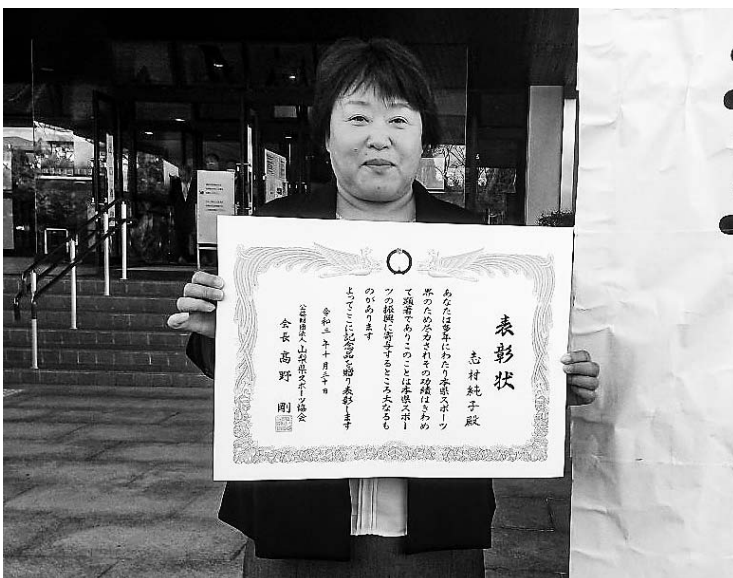 表彰状
志村純子殿
あなたは多年にわたり本県スポーツ
界のため尽力されその功績はきわめ
て顕著でありこのことは本県スポー
ツの振興に寄与するところ大なるも
のがあります
よってここに記念品を贈り表彰します
令和三年十月三十日
公益財団法人 山梨県スポーツ協会
会長 高野 剛